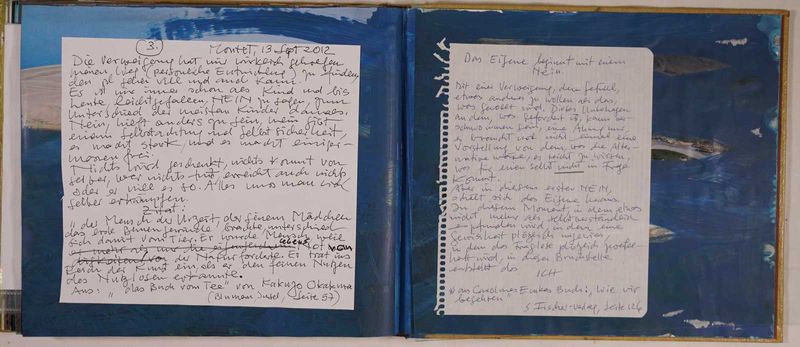 3.
Montet, 13 Sept 2012
Die Verweigerung hat mir wirklich geholfen
meinen Weg (persönliche Entwicklung) zu finden,
den ich gehen will und auch kann.
Es ist mir immer schon als Kind und bis
heute leicht gefallen, NEIN zu sagen, zum
Unterschied der meisten Kinder Kannees.
Nein, nicht anders zu sein, nein gibt
einem Selbstachtung und Selbstsicherheit,
es macht stark und es macht einiger-
massen frei.
Nichts wird geschenkt, nichts kommt von
selber, wer nichts tut erreicht auch nichts
oder er will es so. Alles muss man sich
selber erkämpfen.
Zitat:
"der Mensch der Urzeit, der seinem Mädchen
das erste Blumengewinde brachte, unterschied
sich damit vom Tier. Er wurde Mensch, weil
er sich über die Not
der Natur
Reich der Kunst ein, als er den feinen Nutzen
des Nutzlosen erkannte.
Aus: "das Buch vom Tee" von Kakuzo Okakura
(Blumen Insel, Seite 57)
Das Eigene beginnt mit einem
Nein.
Mit einer Verweigerung, dem Gefühl,
etwas anderes zu wollen als das,
was gewollt wird. Dieses Unbehagen
an dem, was gefordert ist, kann ver-
schwommen sein, eine Ahnung nur,
es braucht noch nicht einmal eine
Vorstellung von dem, was die Alter-
native wäre, es reicht zu wissen,
was für einen selbst nicht in Frage
kommt.
Aber in diesem ersten NEIN,
schält sich das Eigene heraus.
In diesem Moment, in dem etwas
nicht mehr als selbstverständlich
empfunden wird, in dem eine
Gewissheit plötzlich
dem das
wird, in dieser Bruchstelle
entsteht das
ICH
aus Carolin Emkes Buch: "Wie wir
begehren"
S. Fischer-Verlag, Seite 126